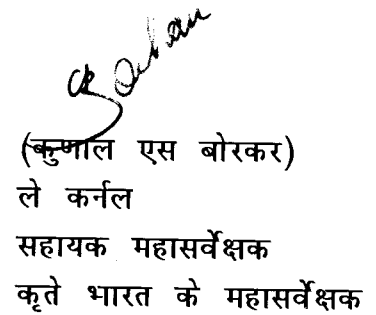 (कुणाल एस बोरकर)
ले कर्नल
सहायक महासर्वेक्षक
कृते भारत के महासर्वेक्षक